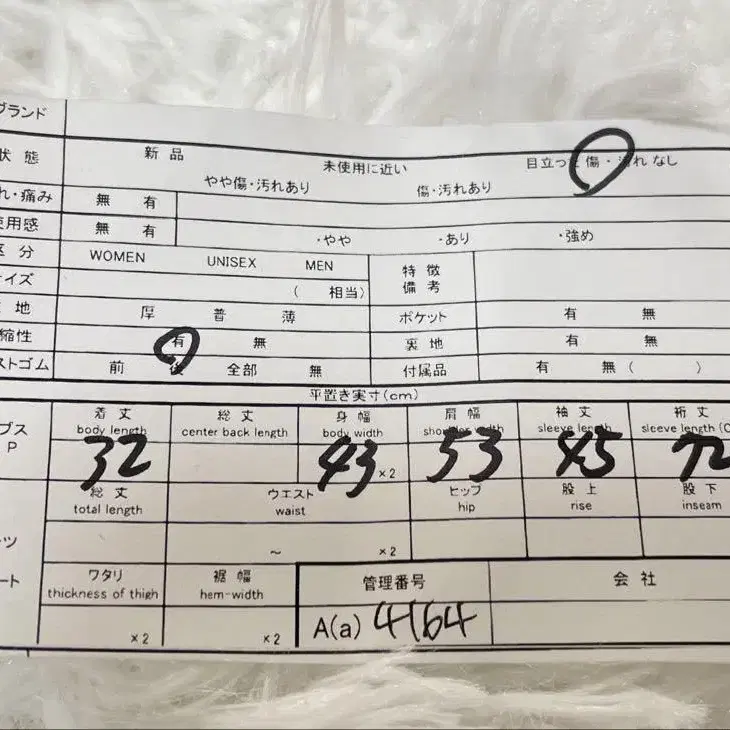 ブランド
状態 新品 未使用に近い 目立った傷・汚れなし
やや傷・汚れあり 傷・汚れあり
れ・痛み 無 有
使用感 無 有 ・やや ・あり ・強め
区分 WOMEN UNISEX MEN 特徴
イズ ( 相当) 備考
地 厚 普 薄 ポケット 有 無
縮性 有 無 裏地 有 無
ストゴム 前 後 全部 無 付属品 有 無( )
平置き実寸(cm)
着丈 総丈 身幅 肩幅 袖丈 裄丈
プス body length center back length body width shoulder width sleeve length sleeve length (C
P 32 43 ×2 53 45 72
総丈 ウエスト ヒップ 股上 股下
total length waist hip rise inseam
ツ ～ ×2
ート ワタリ 裾幅 管理番号 会社
thickness of thigh hem-width
×2 ×2 A(a) 4164